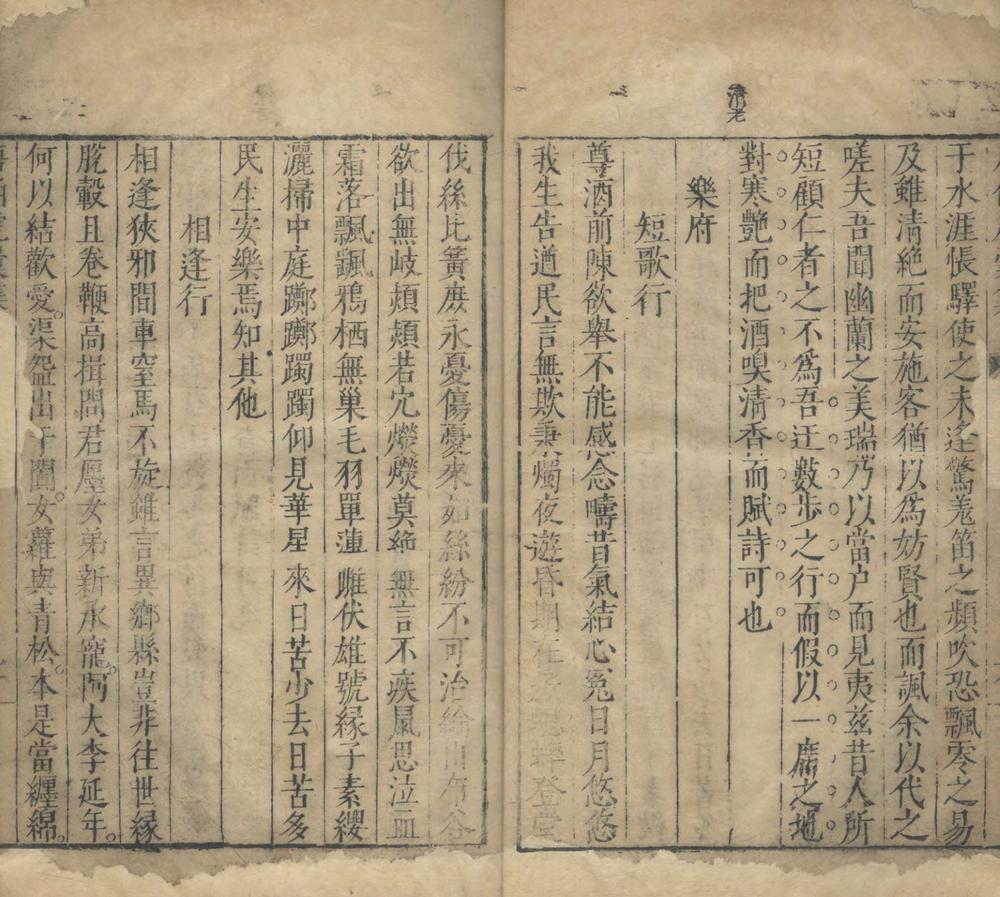 清老
于水涯悵驛使之未逢驚羗笛之頻吹恐飄零之易
及雖清絶而安施客猶以為妨賢也而諷余以代之
嗟夫吾聞幽蘭之美瑞乃以當户而見夷兹昔人所
短顧仁者之不為吾迂數步之行而假以一席之地
對寒艷而把酒嗅清香而賦詩可也
樂府
短歌行
尊酒前陳欲舉不能感念疇昔氣結心冤日月悠悠
我生告遒民言無欺秉燭夜遊昏期在蟋蟀登堂
伐絲比簧庻永憂傷憂來如絲紛不可治綸山布谷
欲出無岐熲熲若宂熒熒莫絶無言不疾鼠思泣血
霜落飄飄鴉栖無巢毛羽單薄雌伏雄號緣子素纓
灑掃中庭躑躑躅躅仰見華星來日苦少去日苦多
民生安樂焉知其他
相逢行
相逢狹邪間車窒馬不旋雖言異鄉縣豈非往世緣
脫轂且卷鞭高揖問君廛女弟新承寵阿大李延年
何以結歡愛渠盌出于闐女蘿與青松本是當纒綿